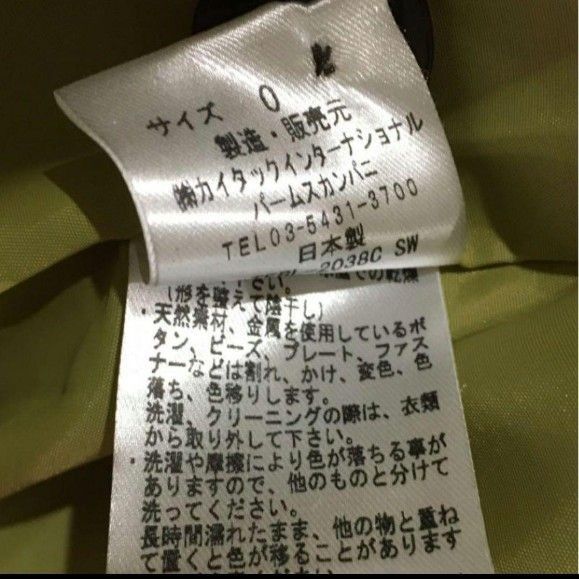 サイズ 0
製造・販売元
㈱カイタックインターナショナル
パームスカンパニ
TEL03-5431-3700
日本製
2038C SW
(形を整えて陰干し)
・天然素材、金属を使用しているボ
タン、ビーズ、プレート、ファス
ナーなどは割れ、かけ、変色、色
落ち、色移りします。
洗濯、クリーニングの際は、衣類
から取り外して下さい。
・洗濯や摩擦により色が落ちる事が
ありますので、他のものと分けて
洗ってください。
長時間濡れたまま、他の物と重ね
て置くと色が移ることがあります